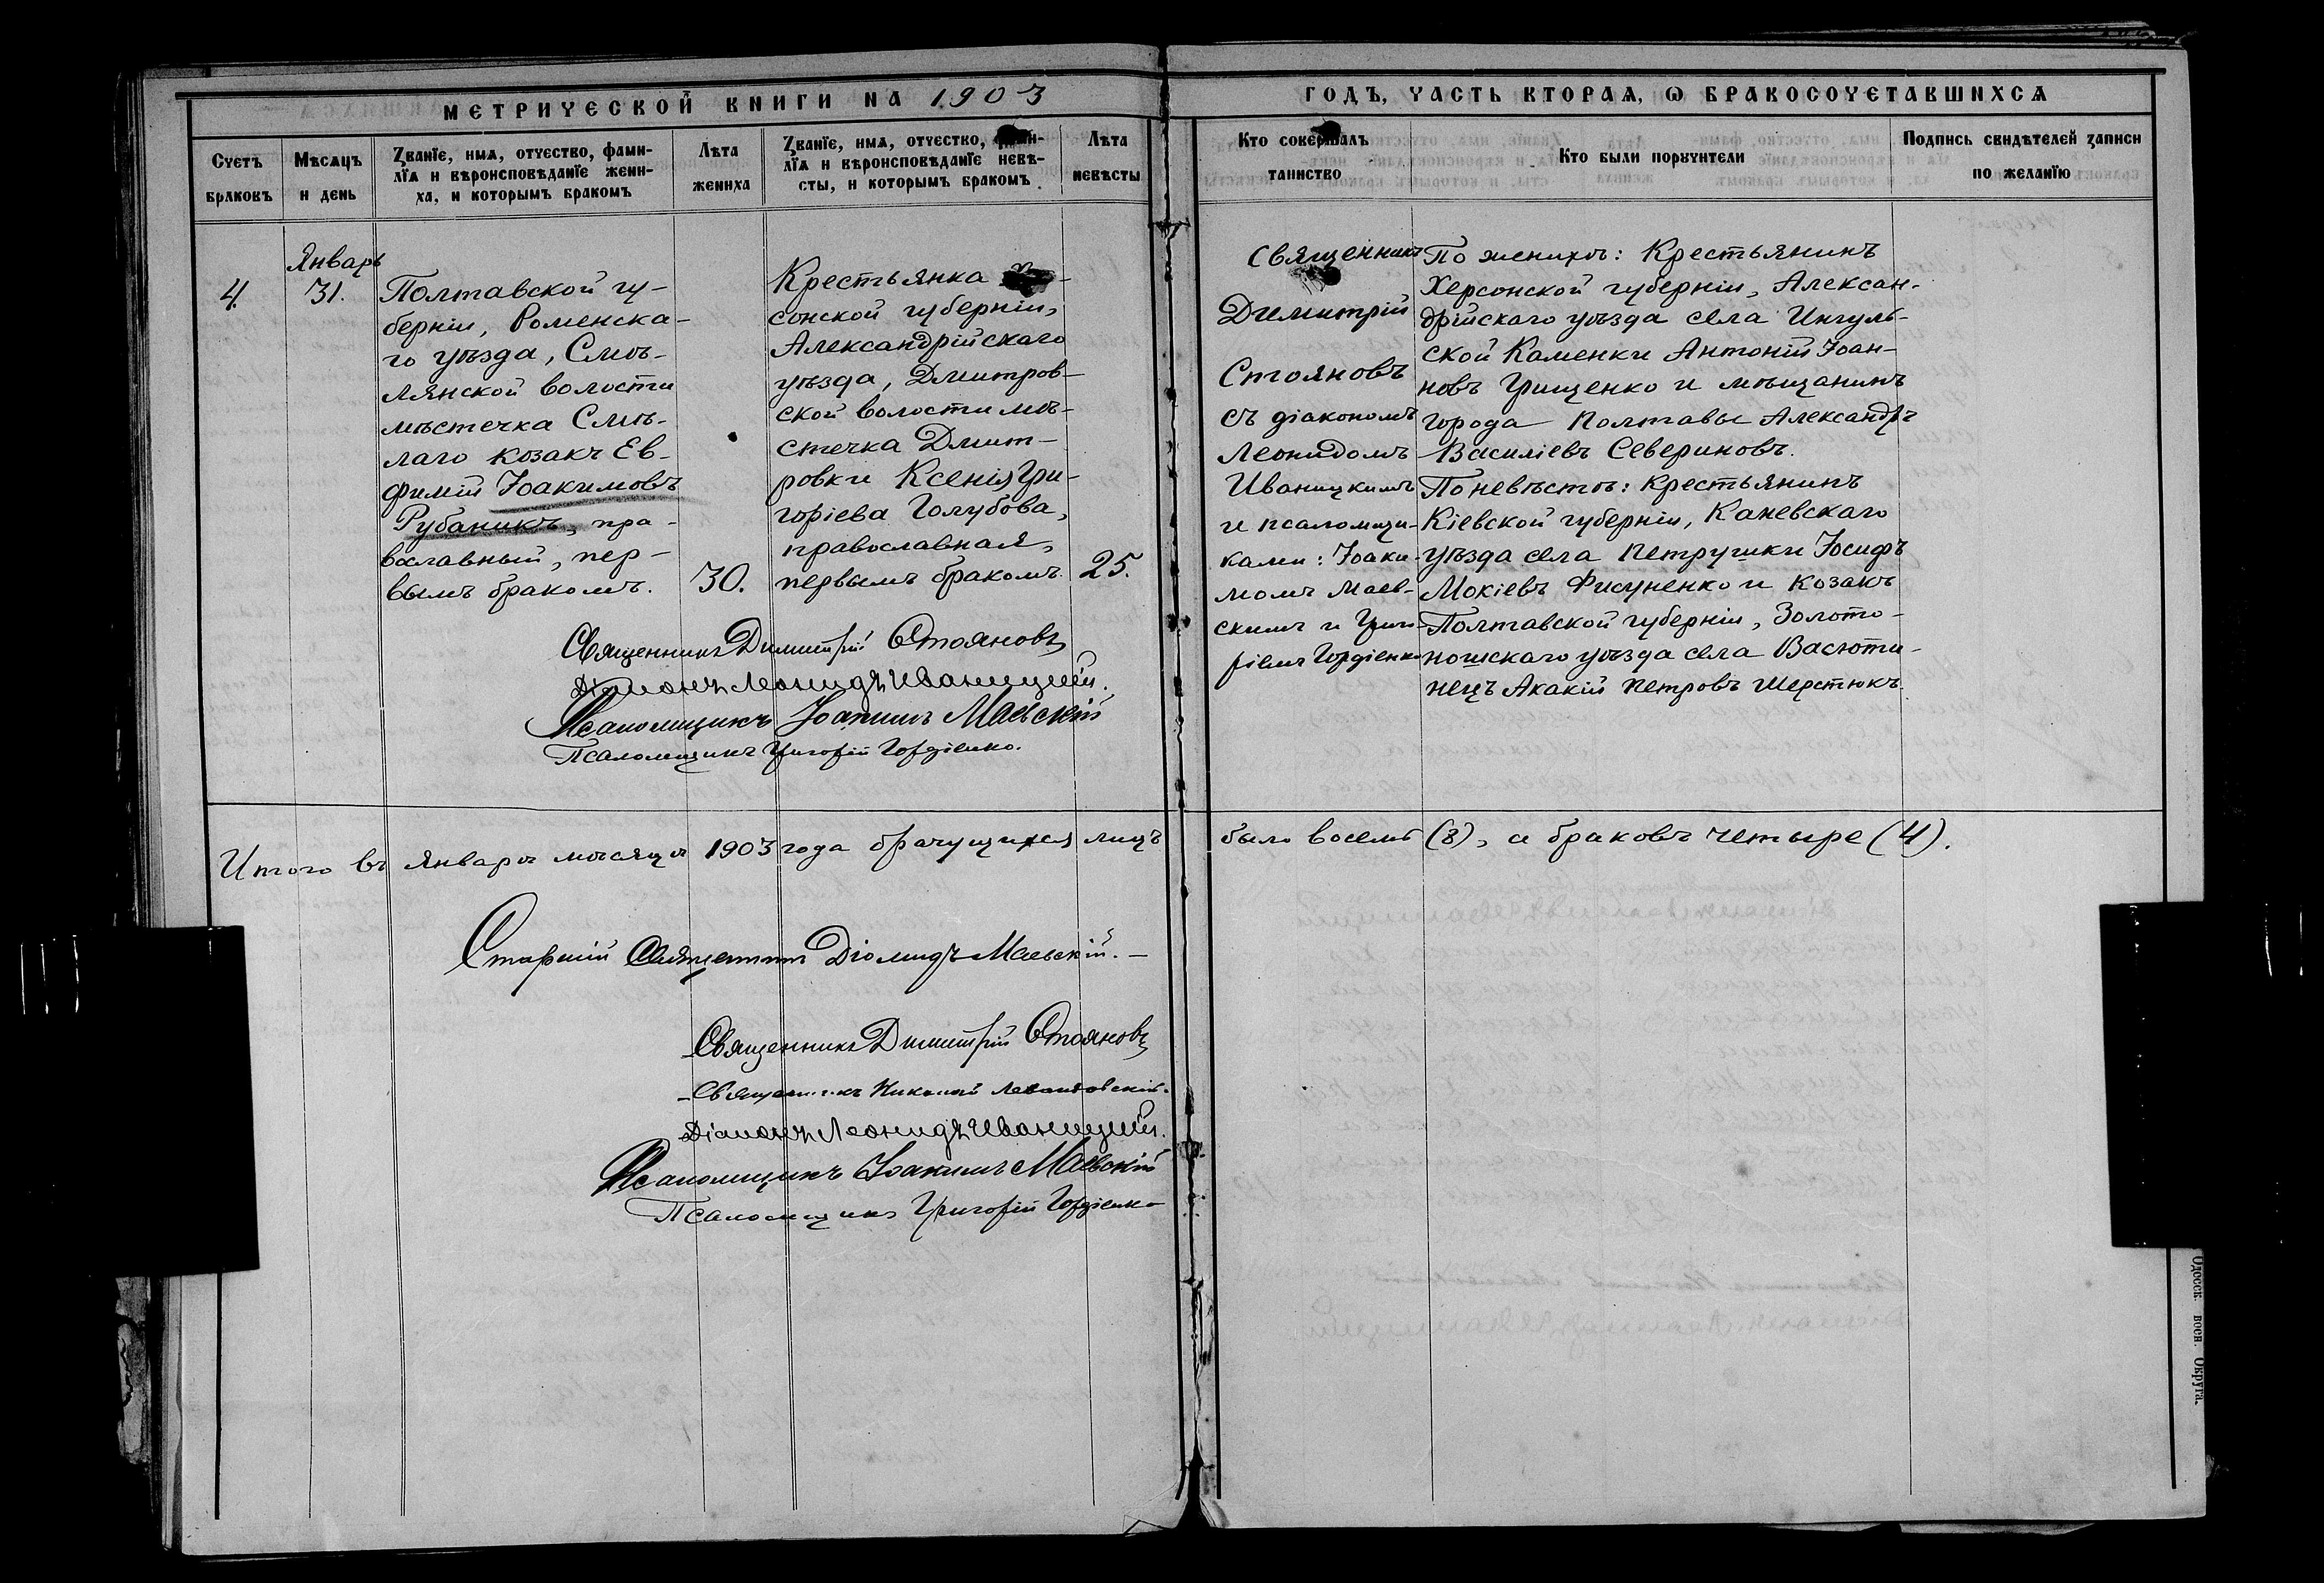 МЕТРИЧЕСКОЙ КНИГИ НА 1903
ГОДЪ, ЧАСТЬ ВТОРАЯ, Ѡ БРАКОСОЧЕТАВШИХСЯ
Счетъ браковъ
Мѣсяцъ и день
Званїе, имя, отчество, фами-
лїя и вѣроисповѣданїе жени-
ха, и которымъ бракомъ
Лѣта жениха
Званїе, имя, отчество, фами-
лїя и вѣроисповѣданїе невѣ-
сты, и которымъ бракомъ
Лѣта невѣсты
Кто совершалъ таинство
Кто были поручители
Подпись свидѣтелей записи по желанїю
4.
Январь
31.
Полтавской гу-
берніи, Роменска-
го уѣзда, Смѣ-
лянской волости
мѣстечка Смѣ-
лаго козакъ Ев-
фимій Іоакимовъ
Рубаникъ, пра-
вославный, пер-
вымъ бракомъ.
30.
Крестьянка
сонской губерніи,
Александрійскаго
уѣзда, Дмитров-
ской волости мѣ-
стечка Дмит-
ровки Ксенія Гри-
горіева Голубова,
православная,
первымъ бракомъ.
25.
Священникъ
Димитрій
Стояновъ
съ діакономъ
Леонидомъ
Иваницкимъ
и псаломщи-
ками: Іоаки-
момъ Маев-
скимъ и Григо-
ріемъ Гордіенко
По женихѣ: Крестьянинъ
Херсонской губерніи, Алексан-
дрійскаго уѣзда села Ингуль-
ской Каменки Антоній Іоан-
новъ Грищенко и мѣщанинъ
города Полтавы Александръ
Василіевъ Севериновъ.
По невѣстѣ: Крестьянинъ
Кіевской губерніи, Каневскаго
уѣзда села Петрушки Іосифъ
Мокіевъ Фисуненко и козакъ
Полтавской губерніи, Золото-
ношскаго уѣзда села Васюти-
нецъ Акакій Петровъ Шерстюкъ.
Священникъ Димитрій Стояновъ
Діаконъ Леонидъ Иваницкій.
Псаломщикъ Іоакимъ Маевскій
Псаломщикъ Григорій Гордіенко.
Итого въ январѣ мѣсяцѣ 1903 года брачущихся лицъ было восемь (8), а браковъ четыре (4).
Старшій Священникъ Діомидъ Маевскій.
Священникъ Димитрій Стояновъ
Священникъ Николай Левантовскій.
Діаконъ Леонидъ Иваницкій.
Псаломщикъ Іоакимъ Маевскій
Псаломщикъ Григорій Гордіенко
Одесск. воен. Округа.